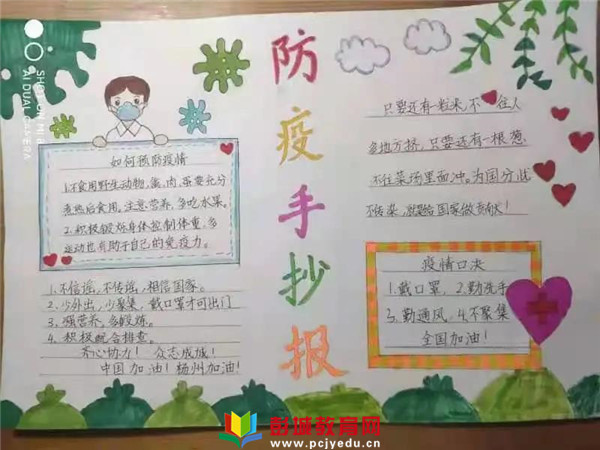 防疫手抄报
如何预防疫情
1.不食用野生动物,禽、肉、蛋要充分
煮熟后食用。注意营养,多吃水果。
2.积极锻炼身体控制体重,多
运动也有助于自己的免疫力。
1、不信谣,不传谣,相信国家。
2、少外出,少聚集,戴口罩才可出门
3、强营养,多锻炼。
4、积极配合排查。
齐心协力! 众志成城!
中国加油!扬州加油!
只要还有一粒米,不 往人
多地方挤,只要还有一根葱
不往菜场里面冲,为国分忧
不传染,
国家做贡献!
疫情口决
1.戴口罩,2.勤洗手
3.勤通风,4.不聚集
全国加油!
SHOT ON MI
AI DUAL CAMERA
彭城教育网
www.pcjyedu.cn